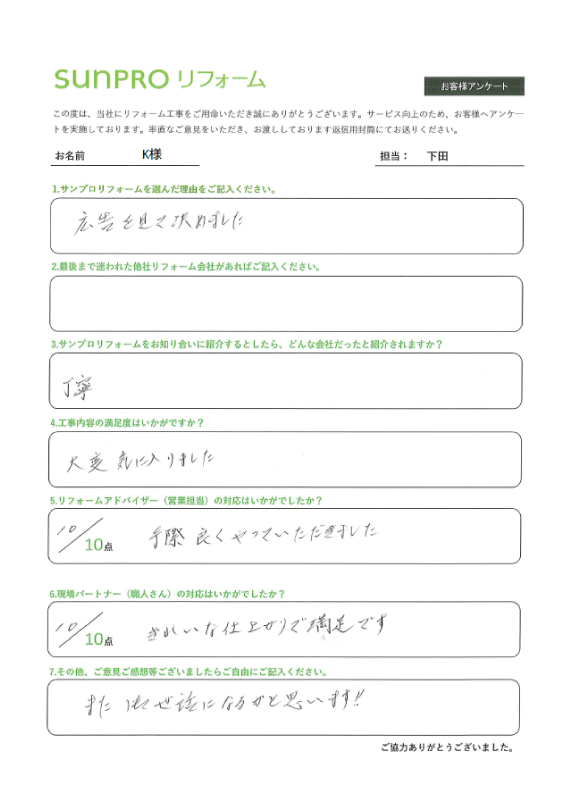 sunPRO リフォーム
お客様アンケート
この度は、当社にリフォーム工事をご用命いただき誠にありがとうございます。サービス向上のため、お客様へアンケー
トを実施しております。率直なご意見をいただき、お渡ししております返信用封筒にてお送りください。
お名前 K様 担当： 下田
1.サンプロリフォームを選んだ理由をご記入ください。
広告を見て決めました
2.最後まで迷われた他社リフォーム会社があればご記入ください。
3.サンプロリフォームをお知り合いに紹介するとしたら、どんな会社だったと紹介されますか？
丁寧
4.工事内容の満足度はいかがですか？
大変気に入りました
5.リフォームアドバイザー（営業担当）の対応はいかがでしたか？
10/10点 手際良くやっていただきました
6.現場パートナー（職人さん）の対応はいかがでしたか？
10/10点 きれいな仕上がりで満足です
7.その他、ご意見ご感想等ございましたらご自由にご記入ください。
また御世話になるかと思います!!
ご協力ありがとうございました。